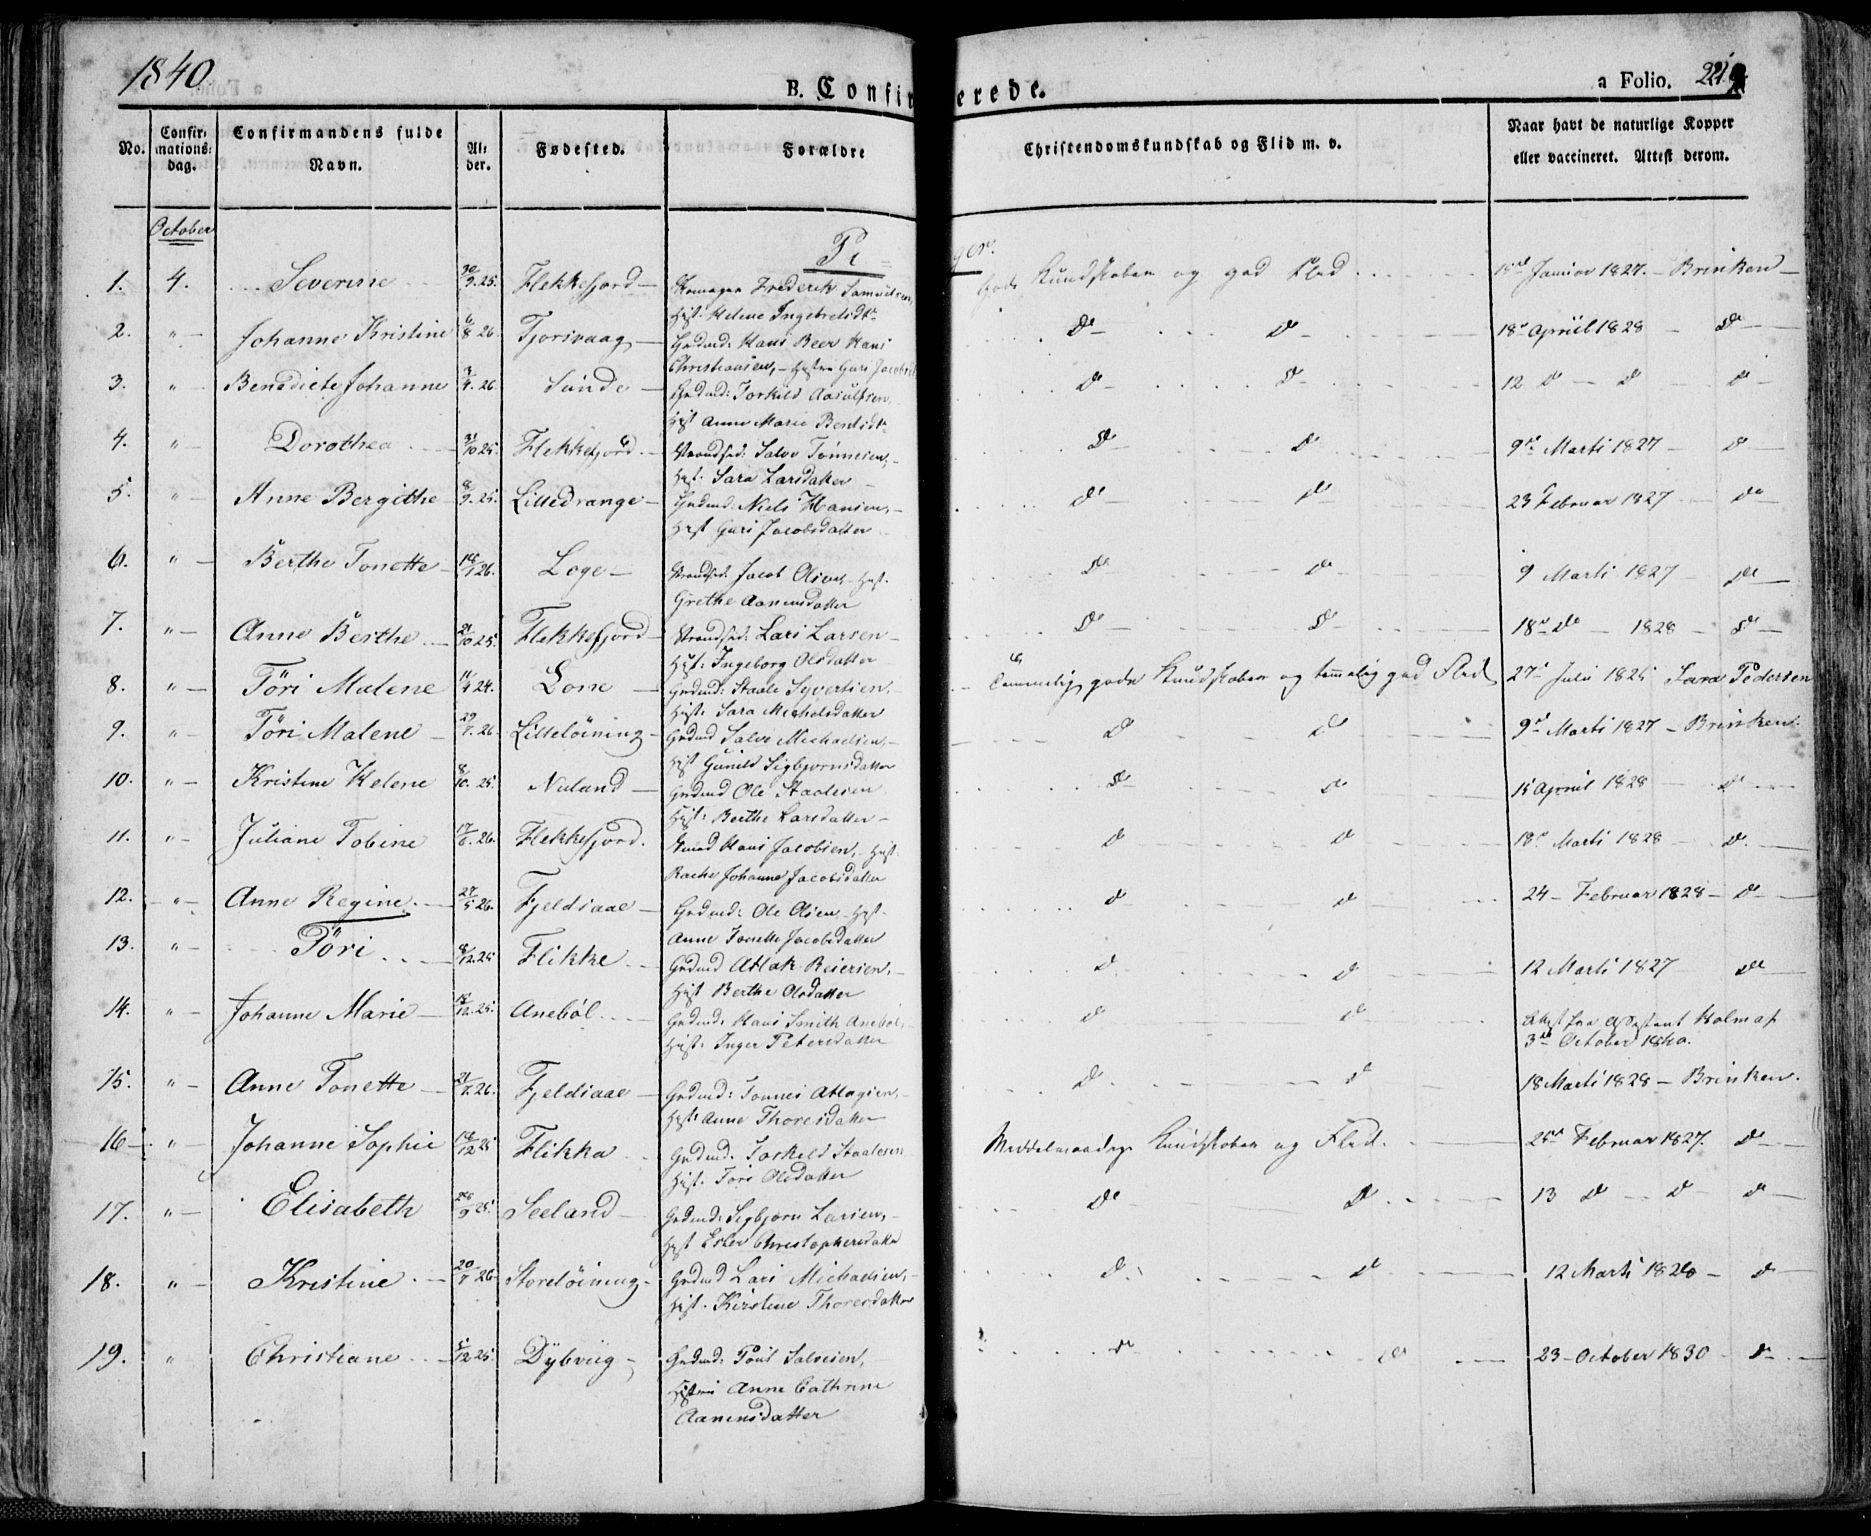 1840
B. Confirmerede.
a Folio. 221
No.
Confirmations: dag.
Confirmandens fulde Navn.
Alder.
Fødested.
Forældre
Christendomskundskab og Flid m. v.
Naar havt de naturlige Kopper eller vaccineret. Attest derom.
October
Pi=ger.
1. 4. Severine 30/9.25. Flekkefjord Frederik Samuelsen, Gode Kundskaber og god Flid Januar 1827. Brinken
Hst. Helene Ingebretsdtr
2. " Johanne Kristine 6/8 26 Tjorsvaag Grdmd: Hans Beer Hans do do 18 April 1828 do
Christiansen, Hustru Guri Jacobsd
3. " Bendicte Johanne 3/4.26 Sunde Grdmd: Torkild Aasulfsen, do do 12 do do do
Hst Anne Marie Bentsdtr
4. " Dorothea 31/10 25 Flekkefjord Strandsid: Salve Tønnesen, do do 9de Marti 1827 do
Hst: Sara Larsdatter
5. " Anne Bergithe 8/9.25. Lilledrange Grdmd: Niels Hansen, do do 23 Februar 1827 do
Hst Guri Jacobsdatter
6. " Berthe Tonette 18/1 26. Loge Strandsid: Jacob Olsen, Hst. do do 9 Marti 1827 do
Grethe Aanensdatter
7. " Anne Berthe 21/10 25. Flekkefjord Strandsid: Lars Larsen do do 18de do 1828 do
Hst: Ingeborg Olsdatter
8. " Töri Malene 11/4 24. Lone Grdmd: Staale Syvertsen, Temmelig gode Kundskaber og temmelig god Flid 27de Juli 1825 Lars Pedersen
Hst: Sara Michelsdatter
9. " Töri Malene 29/7.26 Lilleløining Grdmd Salve Michaelsen, do do 9de Marti 1827 Brinken
Hst Gunild Sigbjørnsdatter
10. " Kristine Helene 8/10.25. Nuland Grdmd Ole Staalesen do do 15 April 1828 do
Hst: Berthe Larsdatter
11. " Juliane Tobine 17/6.26. Flekkefjord. Smed Hans Jacobsen, Hst. do do 18de Marti 1828 do
Rachel Johanne Jacobsdatter
12. " Anne Regine 27/5 26. Fjeldsaae Grdmd: Ole Olsen Hst. do do 24 Februar 1828 do
Anne Tonette Jacobsdatter
13. " Töri 8/12.25 Flikke Grdmd Atlak Reiersen, do do 12 Marti 1827 do
Hst Berthe Olsdatter
14. " Johanne Marie 18/12.25. Anebøl Grdmd: Hans Smith Anebøl, do do Attest fra Assistent Holm af
Hst: Inger Petersdatter 3de October 1840.
15. " Anne Tonette 21/7.26. Fjeldsaae Grdmd: Tønnes Atlagsen, do do 18 Marti 1828 Brinken.
Hst: Anne Thoresdatter
16 " Johanne Sophie 18/12 25 Flikka Grdmd. Torkild Staalesen Middelmaadige Kundskaber og Flid. 25de Februar 1827. do
Hst. Töri Olsdatter
17. " Elisabeth 26/9 25. Seeland Grdmd: Sigbjørn Larsen, do do 13 do do do
Hst Ester Christophersdatter
18. " Kristine 20/7 26 Storeløining Grdmd Lars Michaelsen, do do 12 Marti 1828 do
Hst. Kirstine Thoresdatter
19. " Christiane 5/12 25 Dybviig Grdmd: Tönis Salvesen, do do 23 October 1830 do
Hustru Anne Cathrine
Aanensdatter